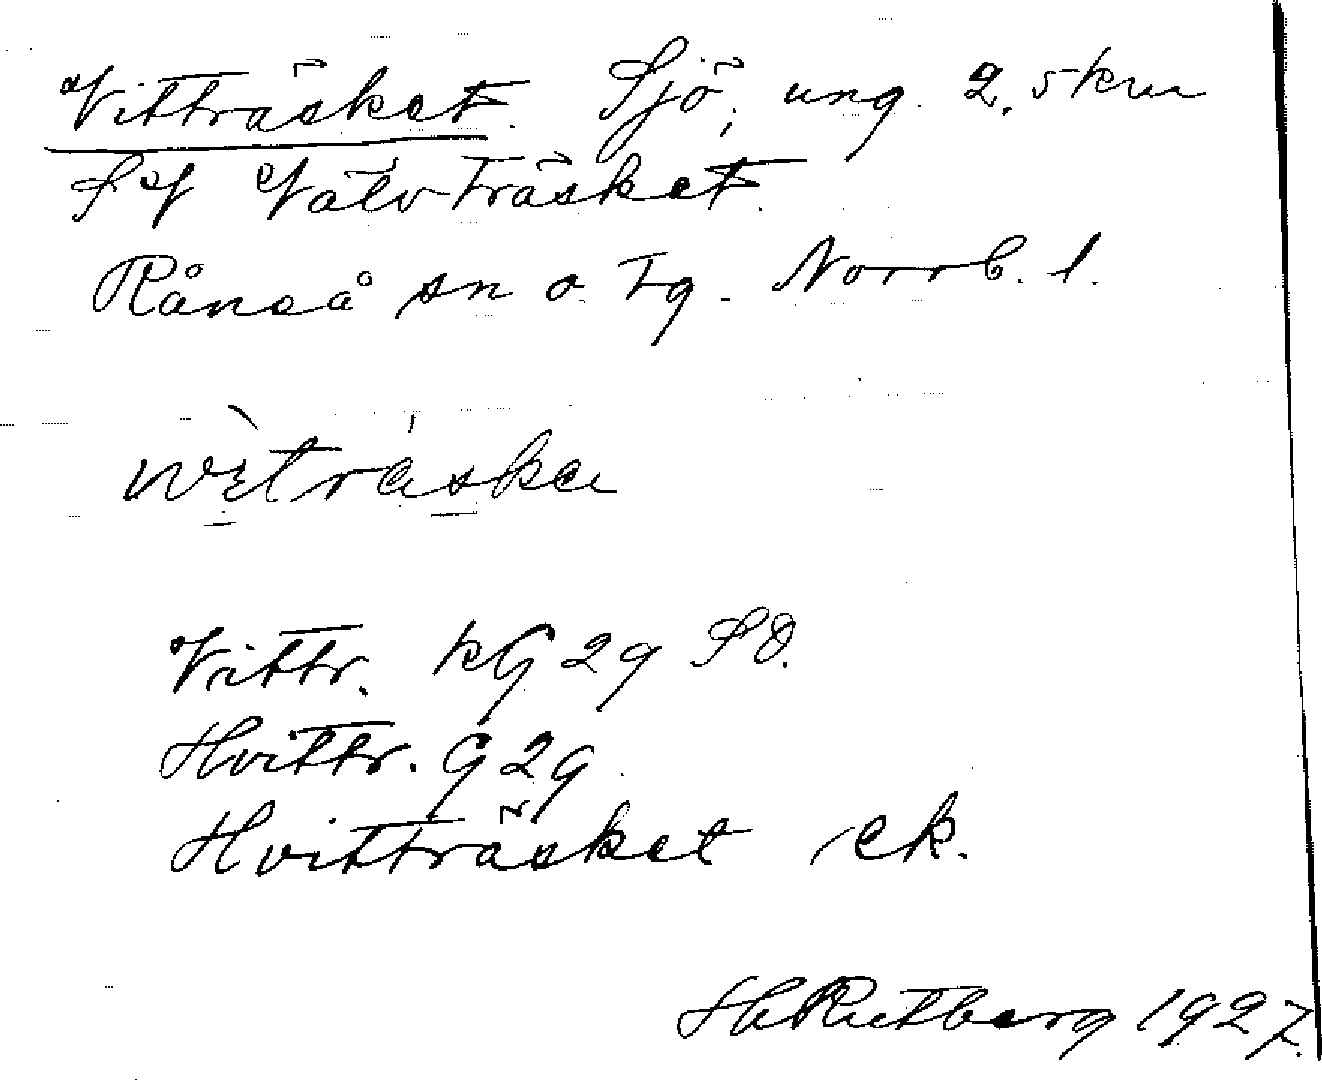 Vitträsket. Sjö, ung. 2,5 km
SV Valvträsket.
Råneå sn o. tg. Norrb. l.
vìtráska
Vittr. kG 29 SO.
Hvittr. G 29
Hvitträsket ek.
Hb Rutberg 1927.